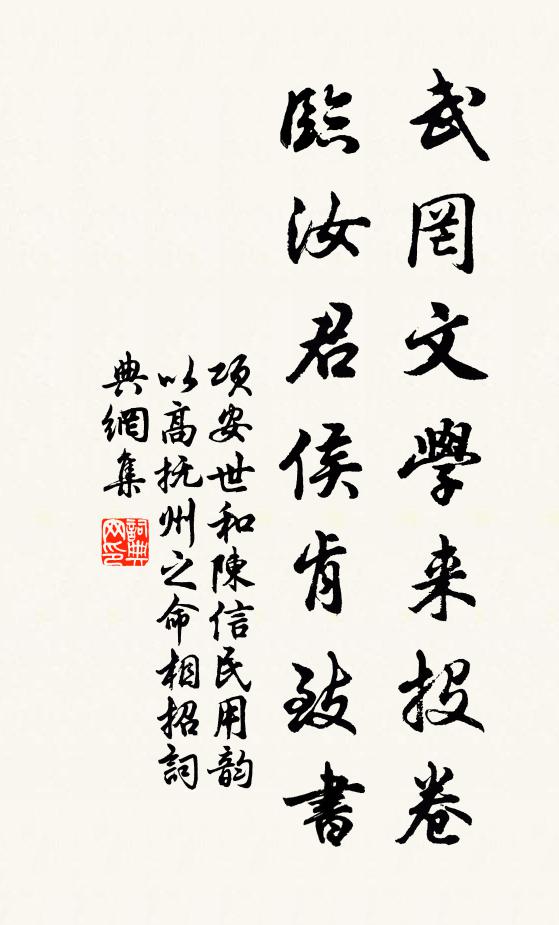 武罔文學来投卷
臨汝君侯肯致書
項安世和陳信民用韵
以高抚州之命相招詞
典網集
詞典
网印